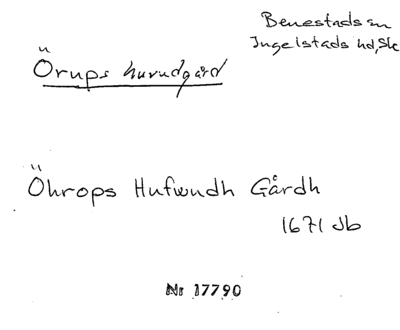 Benestads sn
Ingelstads hd, Sk
Örups huvudgård
Öhrops Hufwudh Gårdh
1671 Jb
Nr 17790